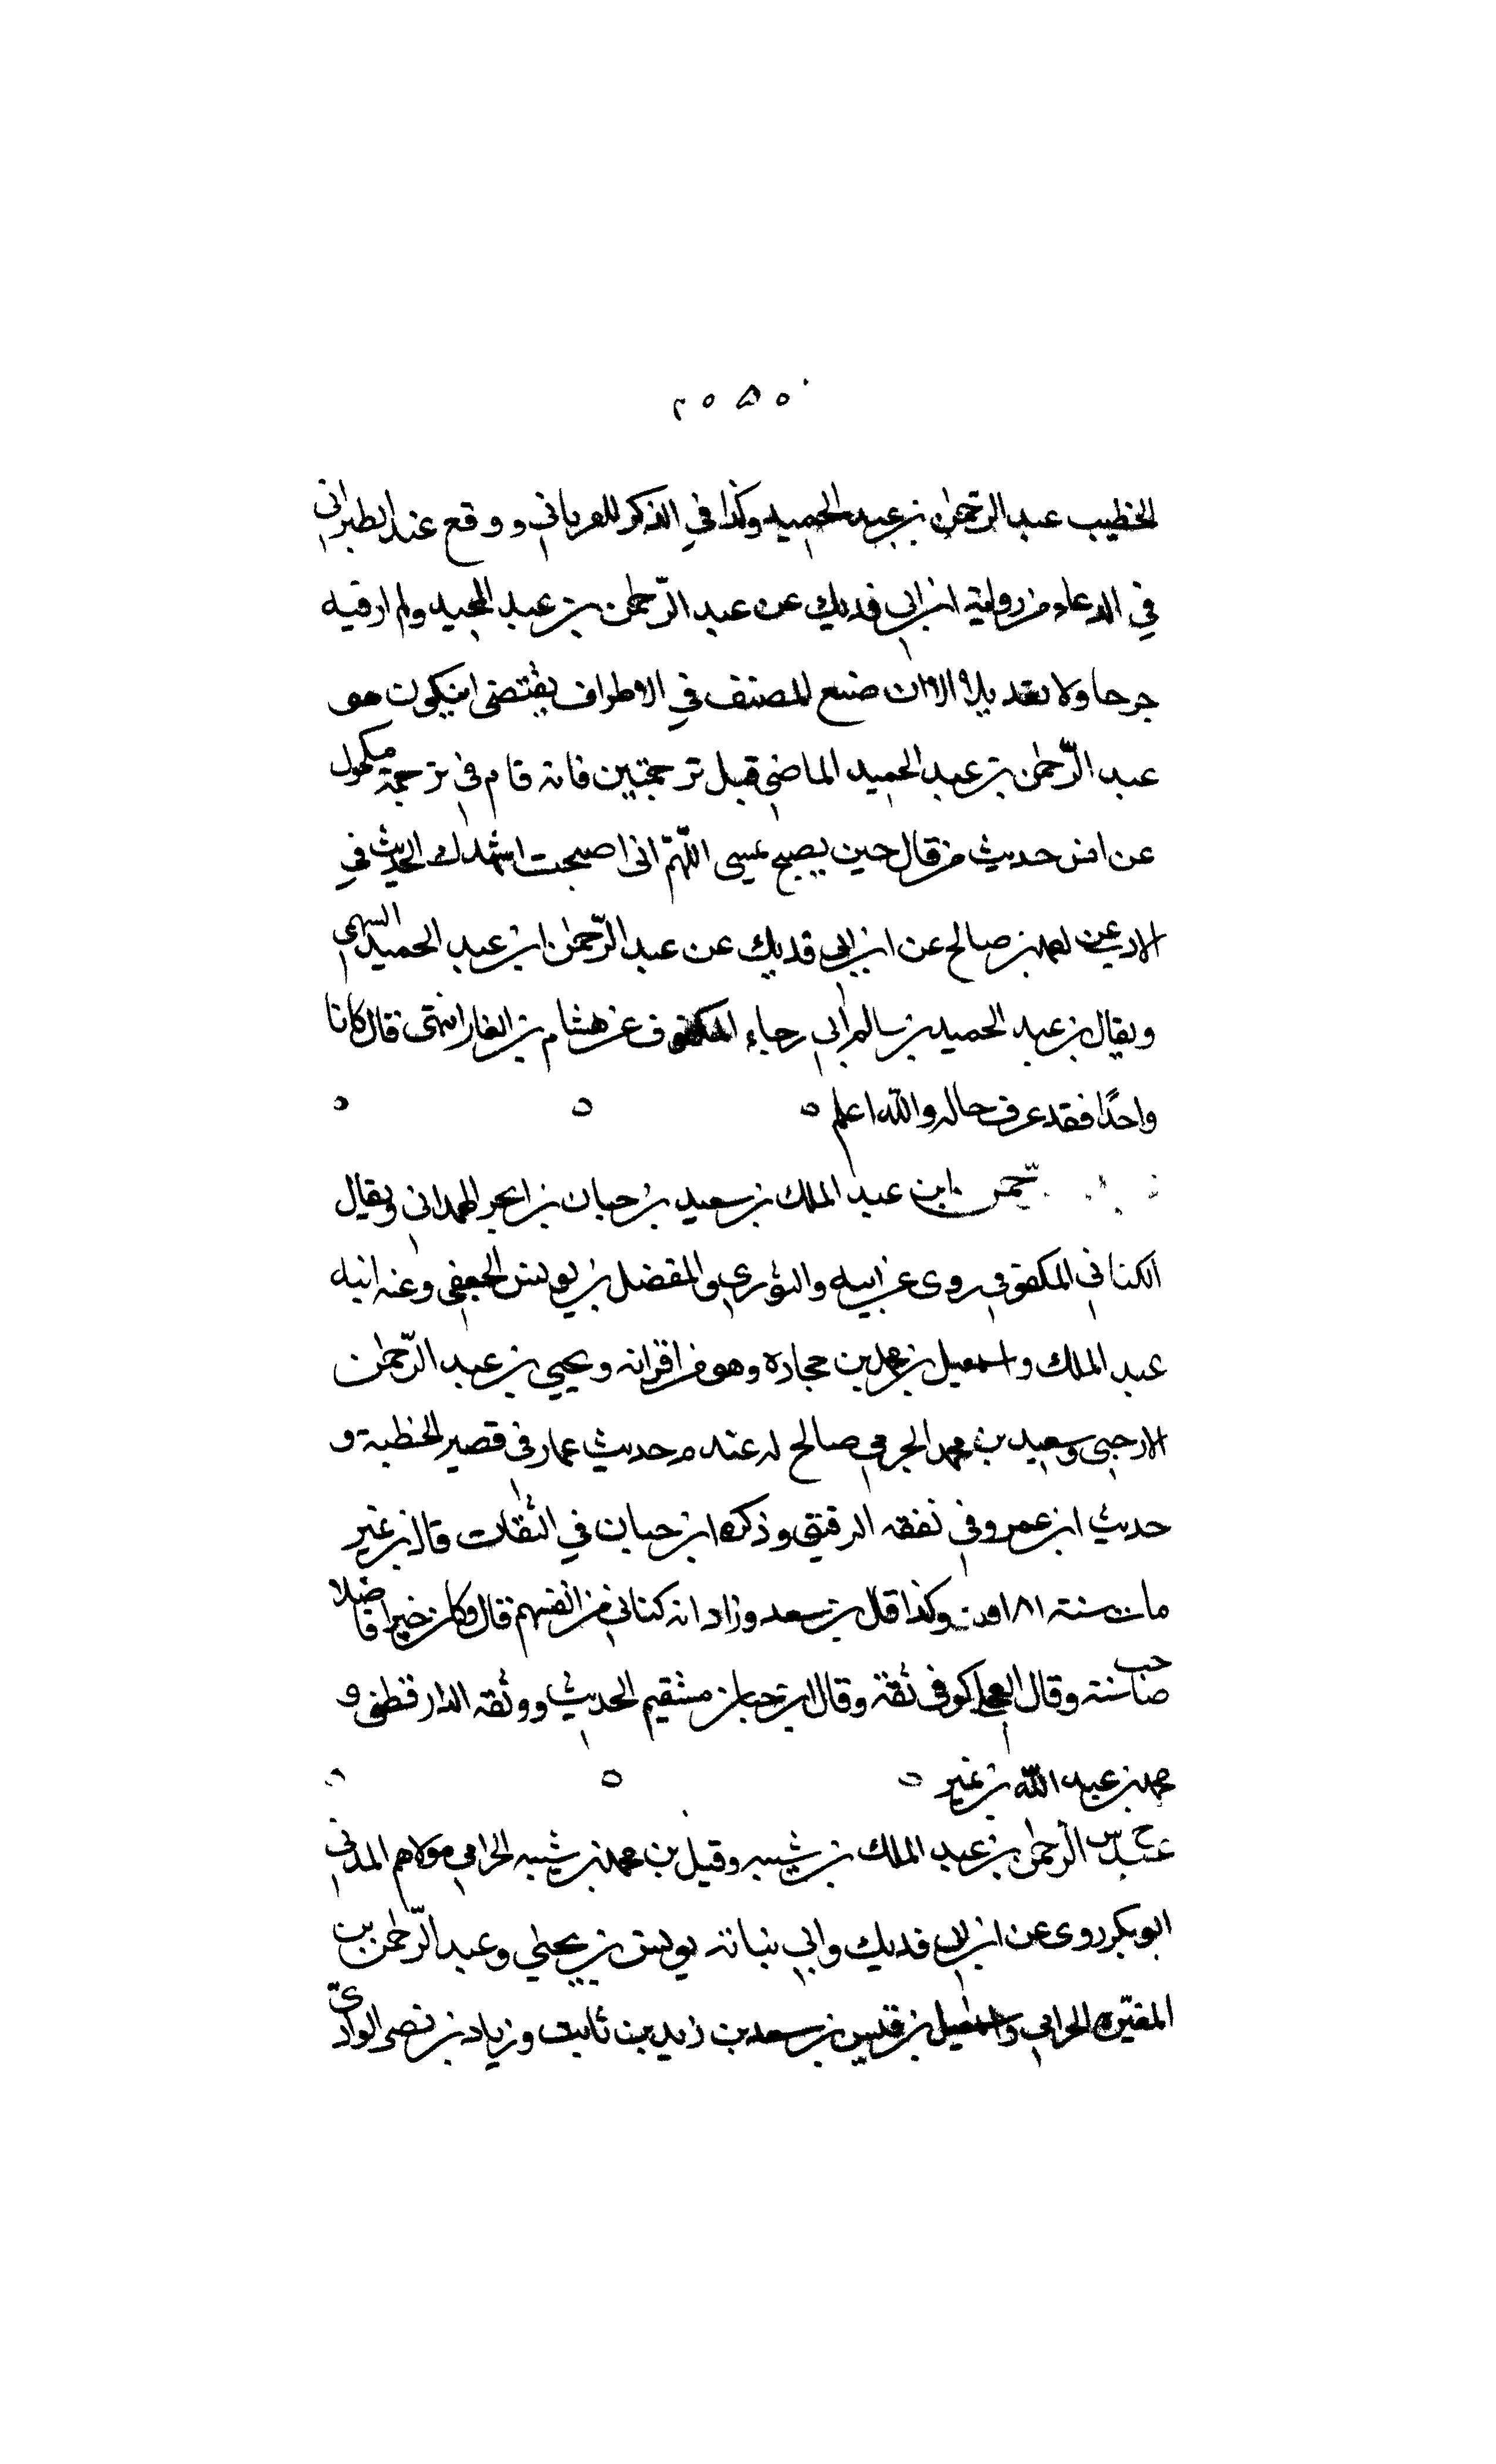 الخطيب عبد الرّحمٰن بن عبد الحميد وكذا في الذكر للفريابي ووقع عند الطبراني
في الدعاء من رواية ابن ابي فديك عن عبد الرّحمٰن بن عبد المجيد ولم ار فيه
جرحا ولا تعديلا الا ان صنيع المصنف في الاطراف يقتضي ان يكون هو
عبد الرّحمٰن بن عبد الحميد الماضي قبل ترجمتين فانه قال في ترجمة مكحول
عن انس حديث من قال حين يصبح يمسي اللّهمّ اني اصبحت اشهدك الحديث في
الادب عن احمد بن صالح عن ابن ابي فديك عن عبد الرّحمٰن ابن عبد الحميد السهمي
ويقال بن عبد الحميد بن سالم ابي رجاء المكفوف عن هشام بن الغاز انتهى قال كانا
واحدًا فقد عرف حاله والله اعلم
ّحمن ابن عبد الملك بن سعيد بن حبان بن ابجر الهمداني ويقال
الكناني الكوفي روى عن ابيه والثوري والمفضل بن يونس الجعفي وعنه ابنه
عبد الملك واسمعيل بن محمد بن جحادة وهو من اقرانه ويحيي بن عبد الرّحمٰن
الارحبي وسعيد بن محمد الجرمي صالح له عند م حديث عمار في قصير الخطبة و
حديث ابن عمرو في نفقه الرقيق وذكره ابن حبان في الثقات قال بن نمير
مات سنة ١٨١ وكذا قال بن سعد وزاد انه كناني من انفسهم قال وكان خيرا فاضلا
صاحب سنة وقال العجلي كوفي ثقة وقال ابن حبان مستقيم الحديث ووثقه الدارقطني و
محمد بن عبد الله بن نمير
خ س عبد الرّحمٰن بن عبد الملك بن شيبه وقيل بن محمد بن شيبه الحزامي مولاهم المدني
ابو بكر روى عن ابن ابي فديك وابي نباتة يونس بن يحيٰي وعبد الرّحمٰن بن
المغيرة الحزامي واسمٰعيل بن قيس بن سعد بن زيد بن ثابت وزياد بن نصر الوادي